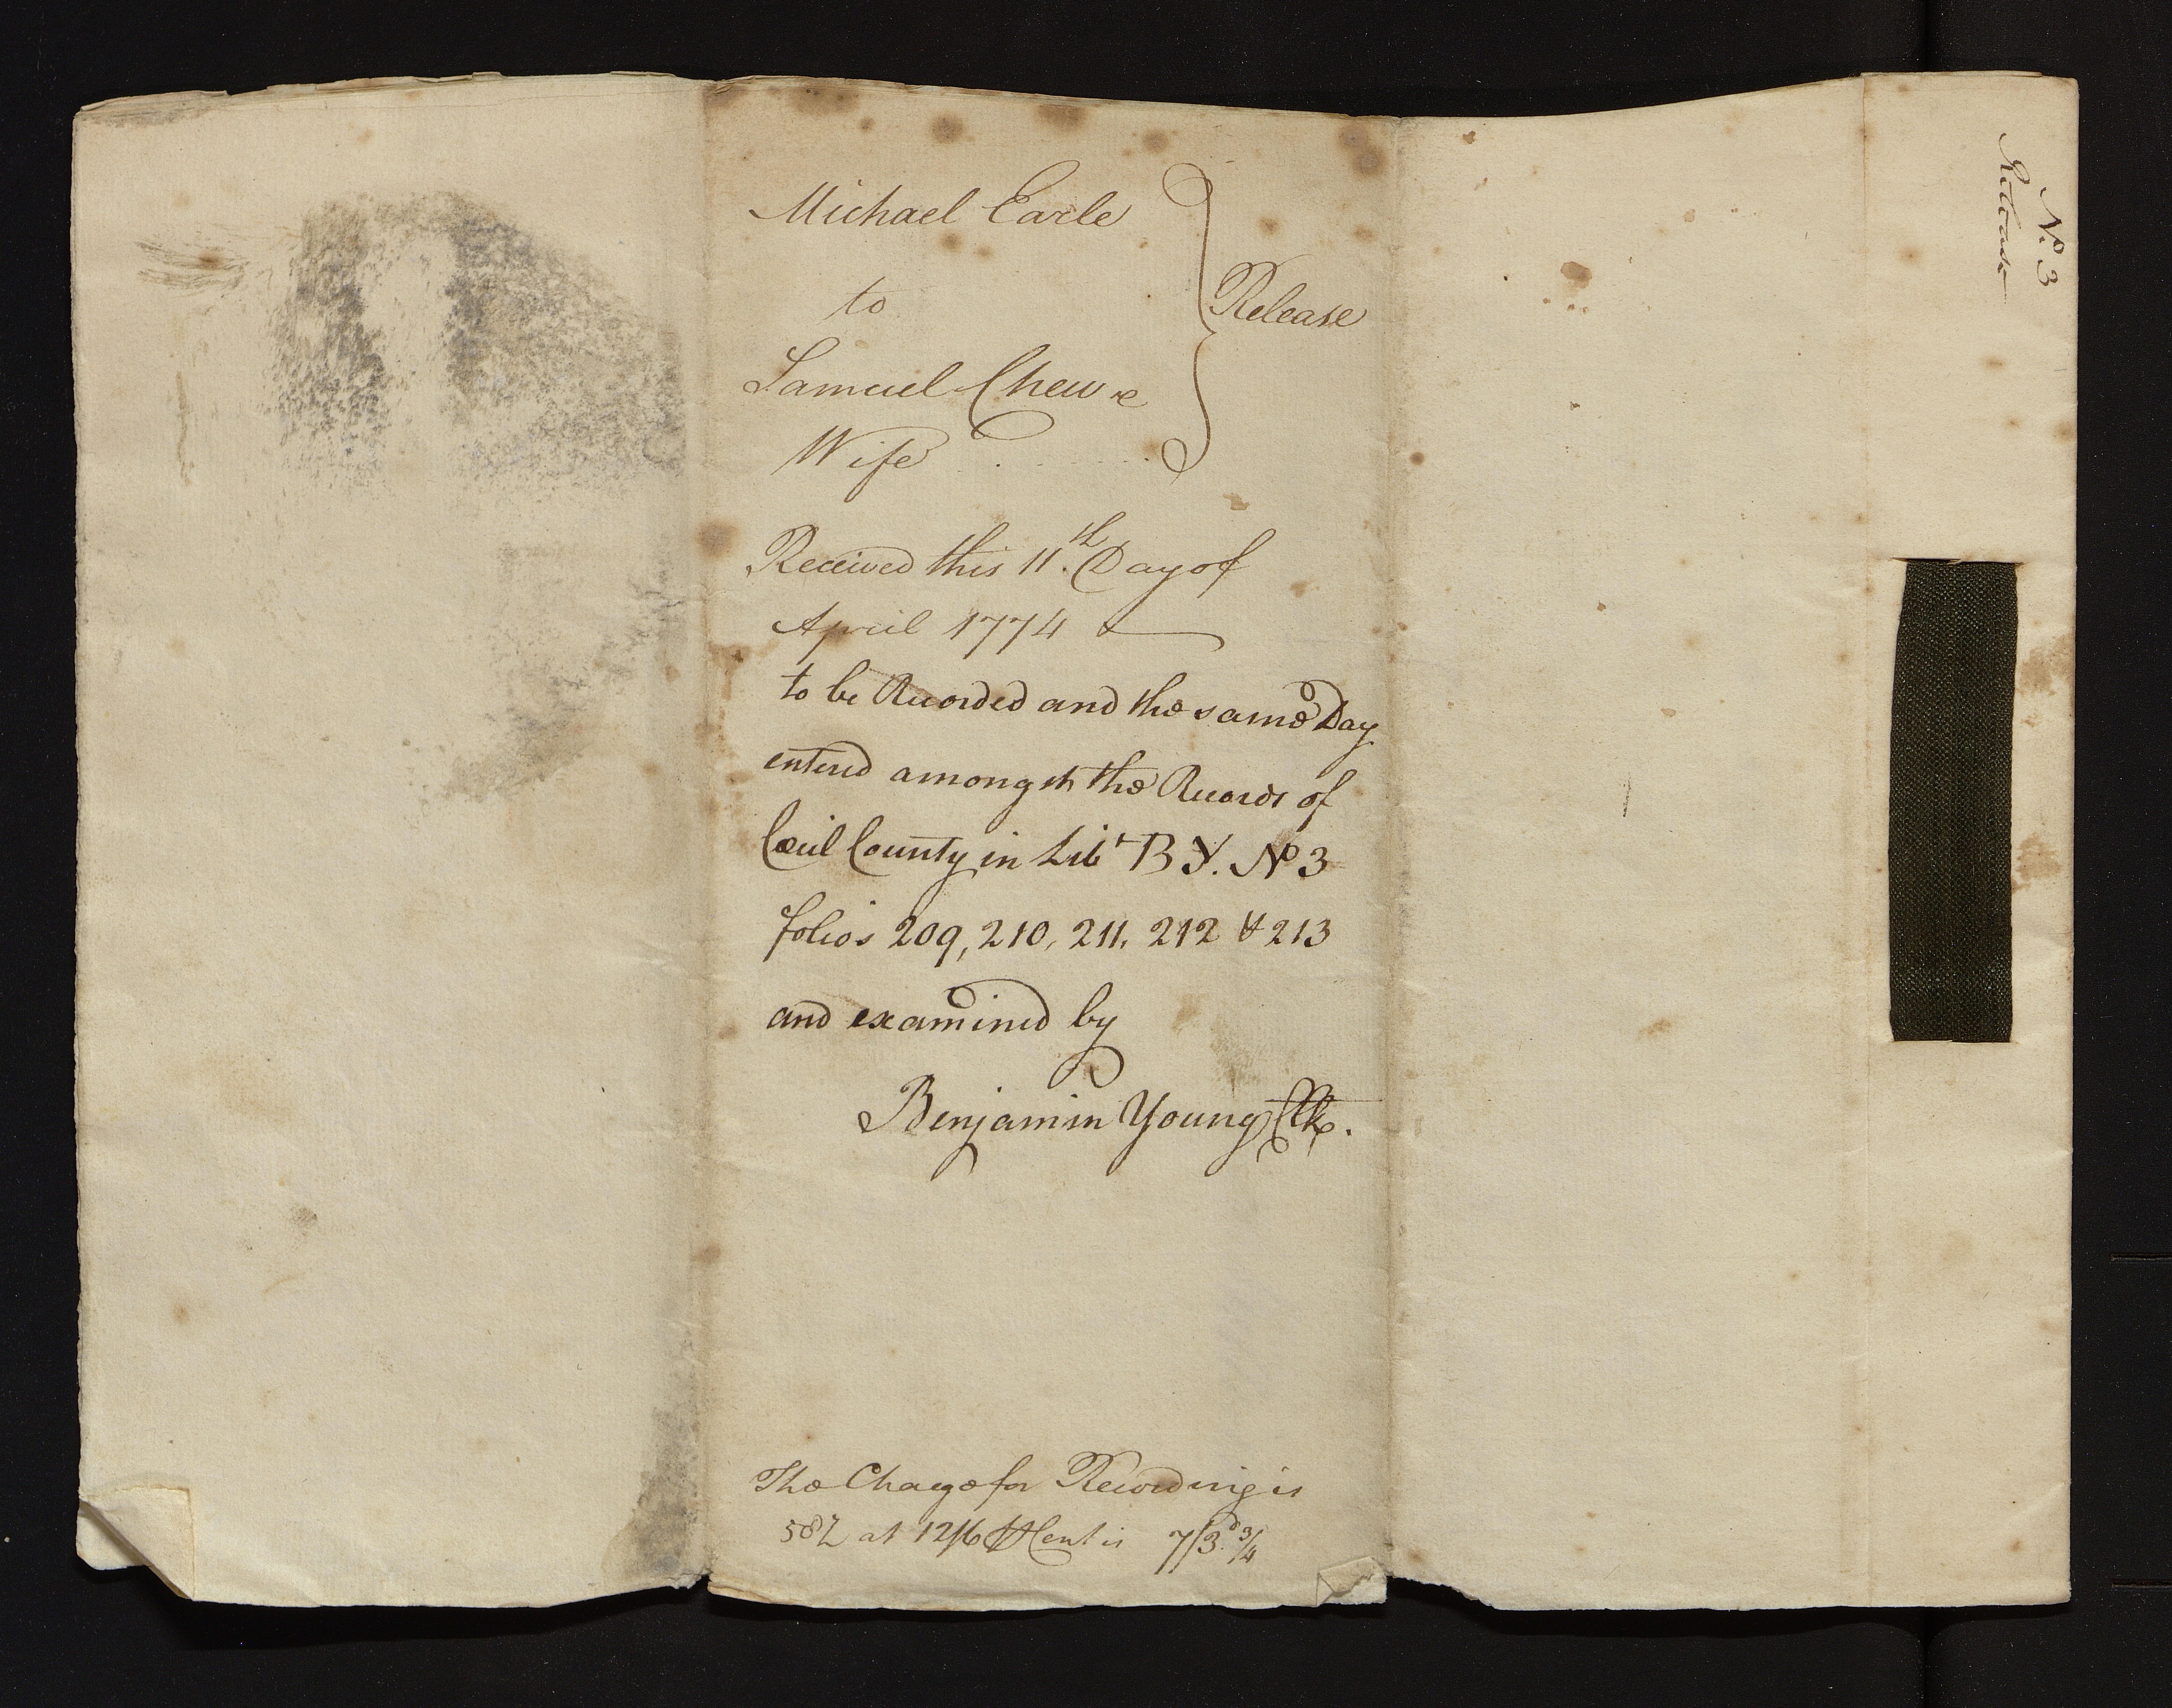 Michael Earle
to
Release
Samuel Chew &
Wife
Received this 11th. Day of
April 1774
to be Recorded and the same Day
entered amongst the Records of
Cecil County in Libr BY. No 3
folios 209, 210, 211, 212 & 213
and examined by
Benjamin Young Clk.
The Chage for Recording is
58 at 12/6 Cent is 7/3d 3/4
No. 3
Release